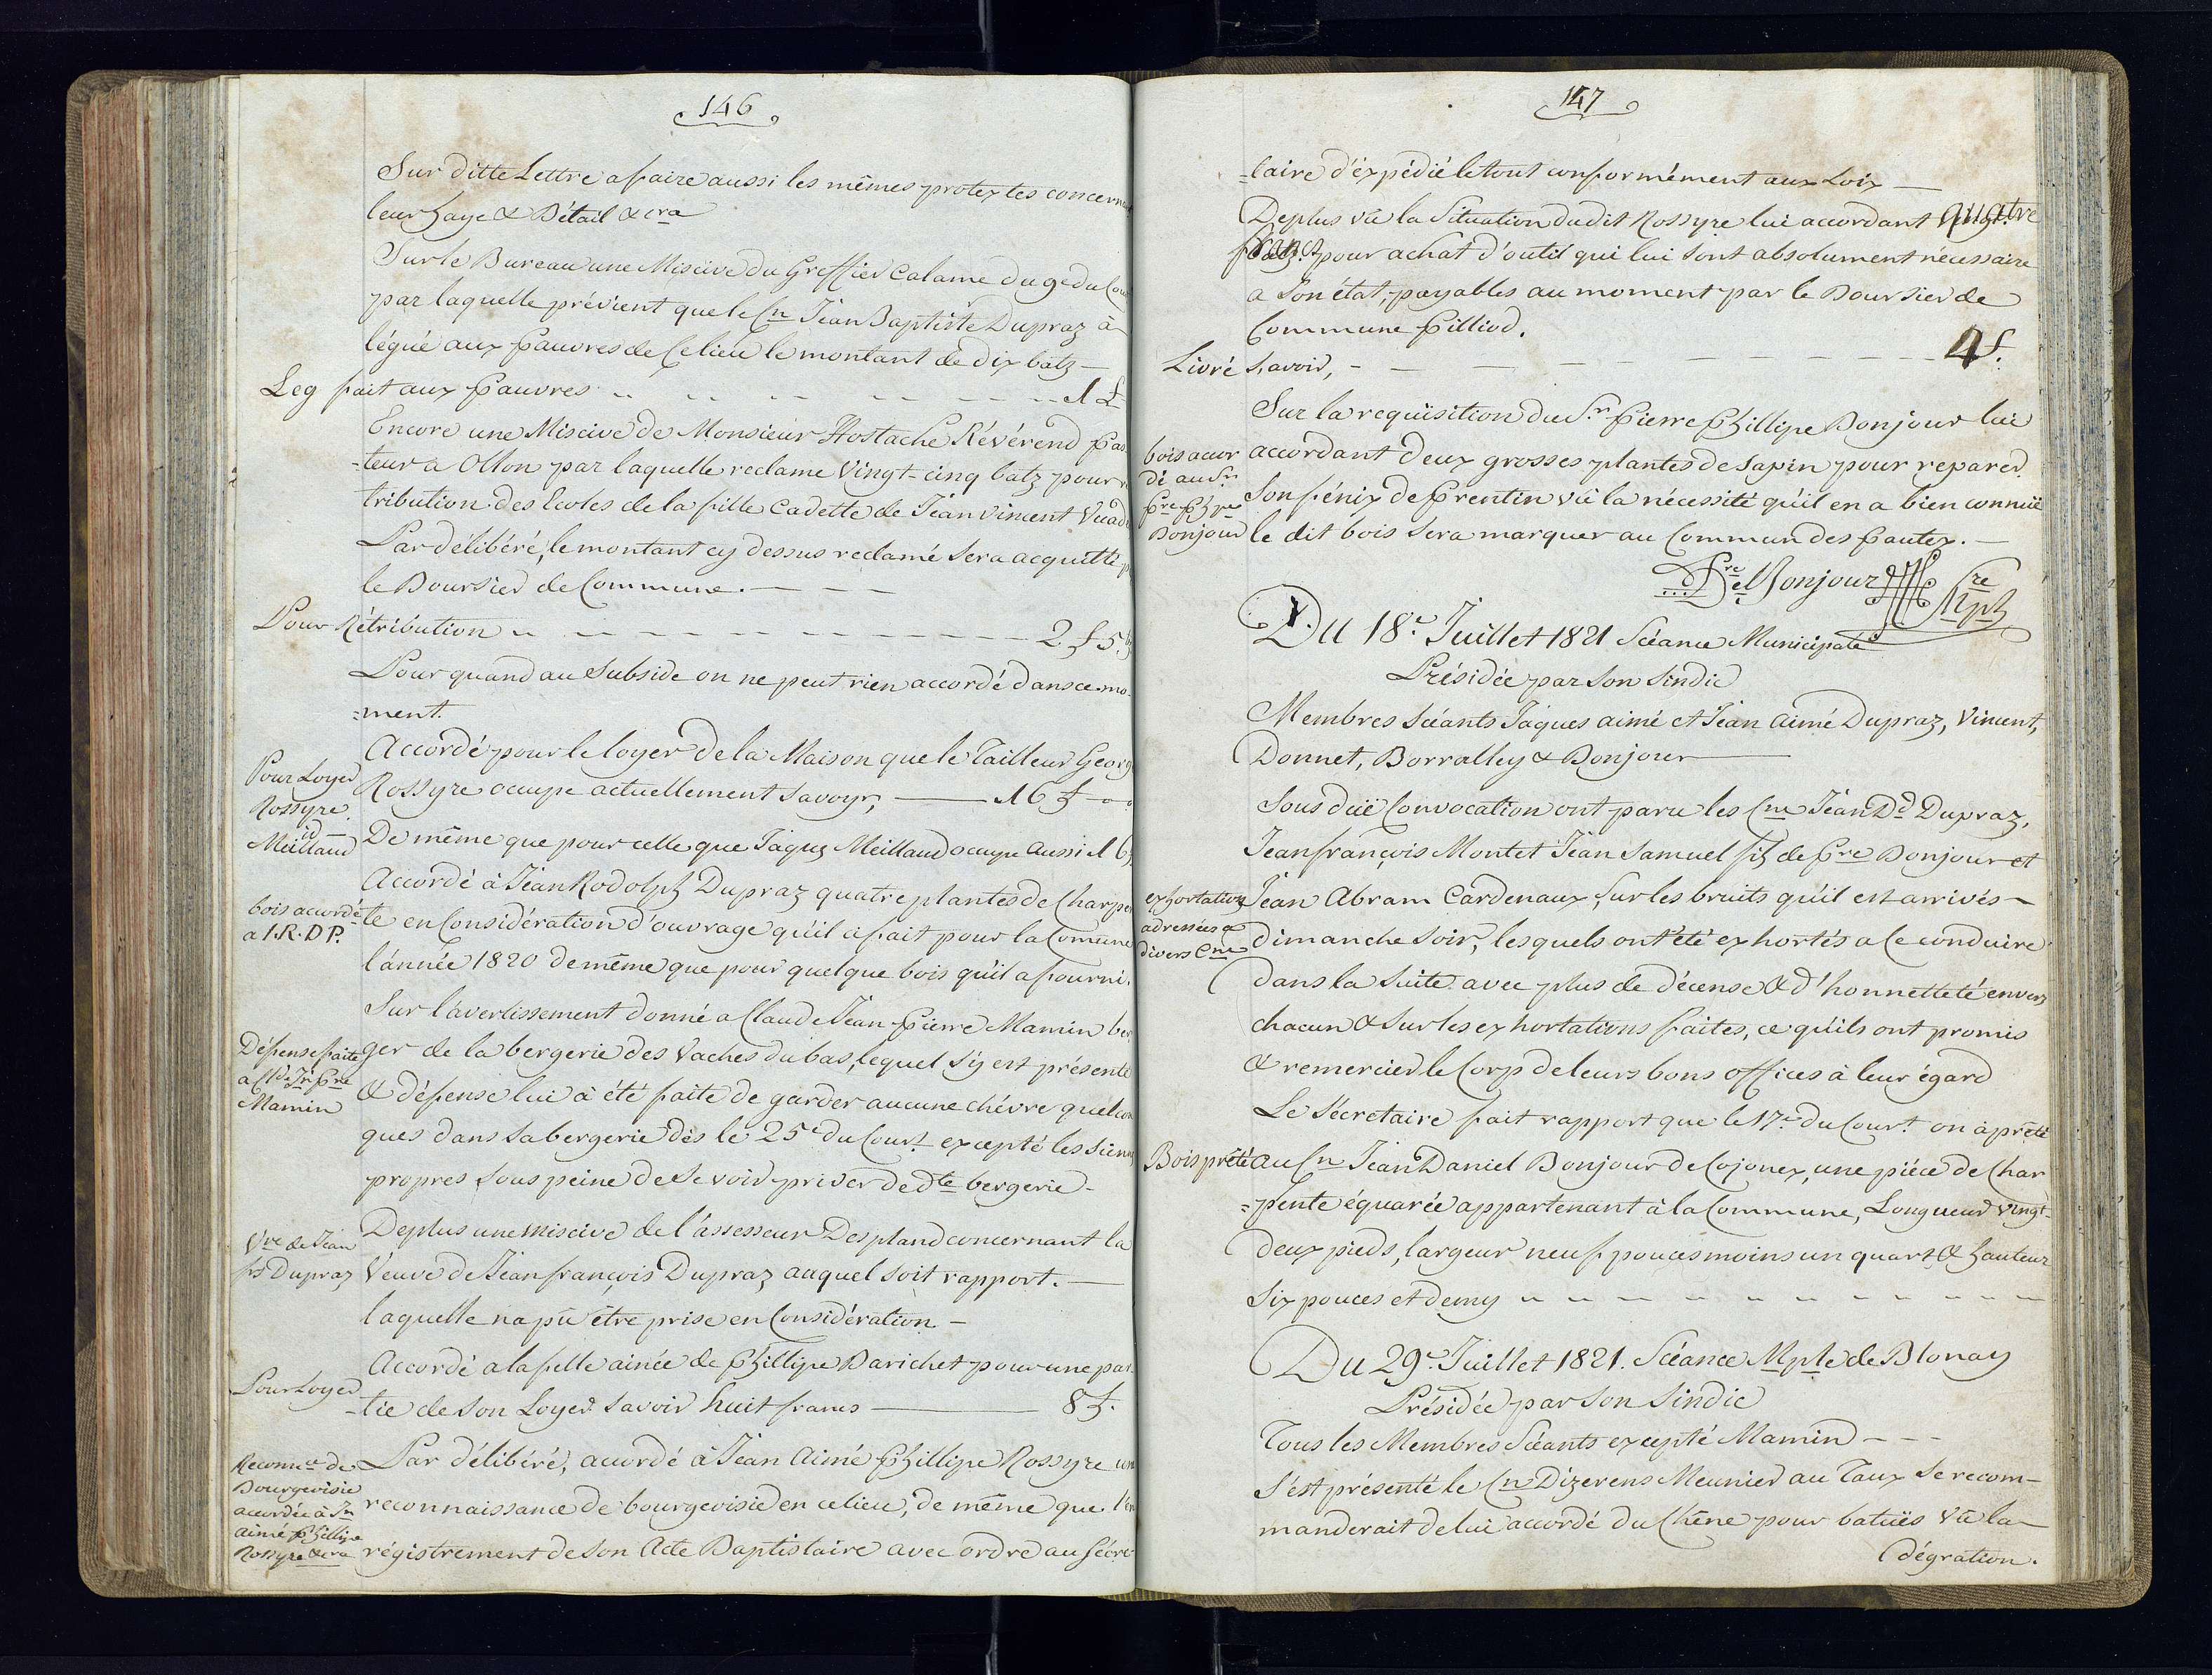 146
Sur ditte Lettre a faire aussi les mêmes protextes concern
leur haye & Bétail & cra
Sur le Bureau une Miscive du Greffier Calame du 9e du Cou
par laquelle prévient que le Cn Jéan Baptiste Dupraz à
légué aux Pauvres de Ce lieu le montant de dix batz —
Leg fait aux Pauvres 1 L
Encore une Miscive de Monsieur Hostache Révérend Pas
=teur a Ollon par laquelle reclame Vingt-cinq batz pour r
tribution des Ecoles de la fille Cadette de Jéan Vincent
Par délibéré, le montant cy dessus reclamé sera acquitté p
le Boursier de Commune. —
Pour Rétribution 2 f 5
Pour quand au Subside on ne peut rien accordé dans ce mo-
=ment.
Accordé pour le loyer de la Maison que le Tailleur Georg
Pour Loyer
Rossyre
Rossyre occupe actuellement Savoyr, — 16 f
id
Meilland
De même que pour celle que Jaques Meilland occupe aussi 16 f
Accordé à Jéan Rodolph Dupraz quatre plantes de Charpen
bois accordé
a J.R.DP.
te en Considération d'ouvrage qu'il a fait pour la Comune
l'année 1820 de même que pour quelque bois qu'il a fourni.
Sur l'avertissement donné a Claude Jéan Pierre Mamin ber
Défense faite
a Cl.de Jn Pre
Mamin
ger de la bergerie des Vaches du bas, lequel s'y est présenté
& défense lui à été faite de garder aucune chévre quelcon
ques dans sa bergerie dès le 25e du Court excepté les sienes
propres sous peine de Se voir priver de dte bergerie —
Deplus une miscive de l'assesseur Despland concernant la
Vve de Jéan
fs Dupraz
Veuve de Jéan françois Dupraz auquel soit rapport. —
laquelle na pû être prise en Considération —
Accordé a la fille ainée de Phillipe Barichet pour une par
Pour Loyer
-tie de son Loyer savoir huit francs — 8 f.
Reconnce de
Bourgeoisie
accordée à Jn
aimé Phillipe
Rossyre &cra
Par délibéré, accordé à Jéan Aimé Phillipe Rossyre une
reconnaissance de bourgeoisie en ce lieu, de même que l'en
régistrement de Son Acte Baptistaire avec ordre au Sécré
147
=taire d'éxpédié le tout conformément aux Loix —
Deplus vû la Situation dudit Rossyre lui accordant quatre
francs pour achat d'outil qui lui sont absolument nécessaire
a Son état, payables au moment par le Boursier de
Commune Pilliod.
Livré Savoir, — 4 f.
Sur la requisition du Sr. Pierre Phillipe Bonjour lui
bois acor
dé au Sr.
Pre Phpe
Bonjour
accordant deux grosses plantes de Sapin pour reparer
Son fénix de Prentin vû la nécessité qu'il en a bien connuë
le dit bois sera marquer au Commun des Pautex. —
Bonjour
Du 18e Juillet 1821 Séance Municipale
Présidée par son Sindic
Membres Séants Jâques aimé et Jéan Aimé Dupraz, Vincent,
Donnet, Borralley & Bonjour —
Sous duë Convocation ont paru les Cne Jéan Dd Dupraz,
Jean françois Montet Jéan Samuel fiz de Pre Bonjour et
exhortation
adressées a
divers Cne
Jéan Abram Cardenaux, sur les bruits qu'il est arrivés —
dimanche soir, lesquels ont été exhortés a Ce conduire
dans la Suite avec plus de décense & d'honnetteté envers
chacun & sur les exhortations faites, ce qu'ils ont promis
& remercier le Corp de leurs bons offices à leur égard
Le Sécretaire fait rapport que le 17e du Court on à prêté
Bois prêté au Cn Jéan Daniel Bonjour de Cojonex, une piéce de Char
=pente équarée appartenant à la Commune, Longueur vingt-
deux pieds, largeur neuf pouces moins un quart & hauteur
Six pouces et demy
Du 29e. Juillet 1821. Séance Mple de Blonay
Présidée par Son Sindic
Tous les Membres Séants excepté Mamin —
S'est présenté le Cn Dizerens Meunier au Taux Se recom-
manderait de lui accordé du Chêne pour batuës vû la
dégration.